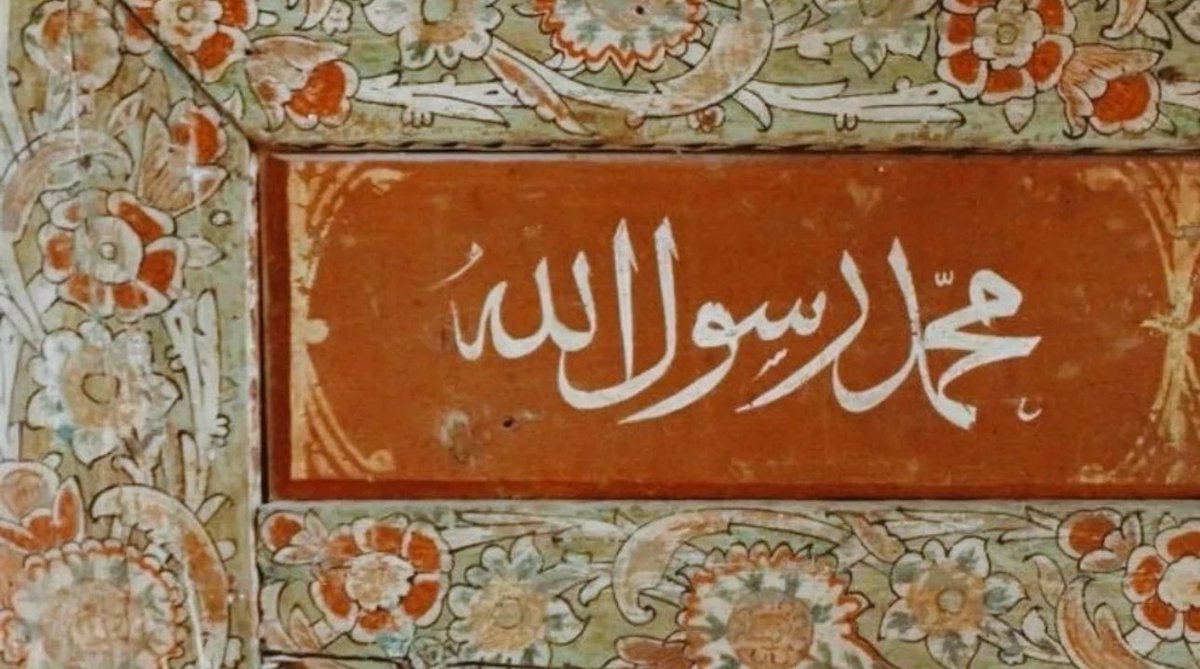 محمّد رسول اللهُ